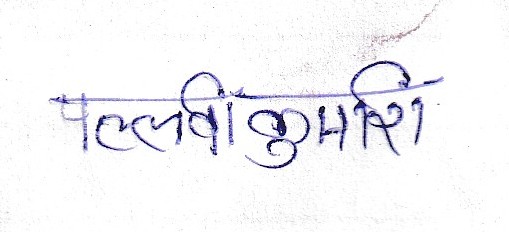 पल्लवी कुमारी